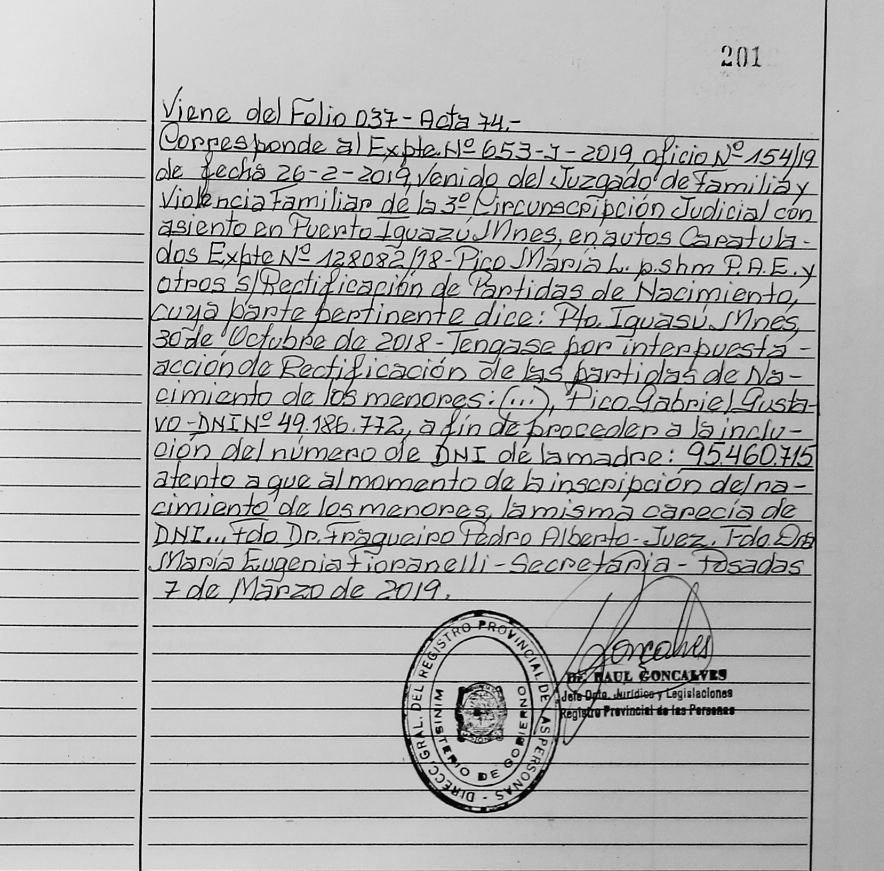 201
Viene del Folio 037-Acta 74.-
Corresponde al Expte.Nº 653-J-2019, oficio Nº 154/19
de fecha 26-2-2019, venido del Juzgado de Familia y
Violencia Familiar de la 3º Circunscripción Judicial con
asiento en Puerto Iguazú Mnes, en autos Caratula-
dos Expte Nº 128082/18-Pico María L. p.shm P.A.E. y
otros s/Rectificación de Partidas de Nacimiento,
cuya parte pertinente dice: Pto. Iguasú Mnes,
30 de Octubre de 2018-Tengase por interpuesta-
acción de Rectificación de las partidas de Na-
cimiento de los menores: (...), Pico Gabriel Gusta-
vo-DNI Nº 49.186.772, a fin de proceder a la inclu-
ción del número de DNI de la madre: 95.460.715
atento a que al momento de la inscripción del na-
cimiento de los menores, la misma carecía de
DNI... Fdo Dr. Fragueiro Pedro Alberto-Juez. Fdo Dra
María Eugenia Fioranelli-Secretaria-Posadas
7 de Marzo de 2019.
Goncalves
RAUL GONCALVES
Jefe Dpto. Jurídico y Legislaciones
Registro Provincial de las Personas
DIRECC. GRAL. DEL REGISTRO PROVINCIAL DE LAS PERSONAS -
MINISTERIO DE GOBIERNO